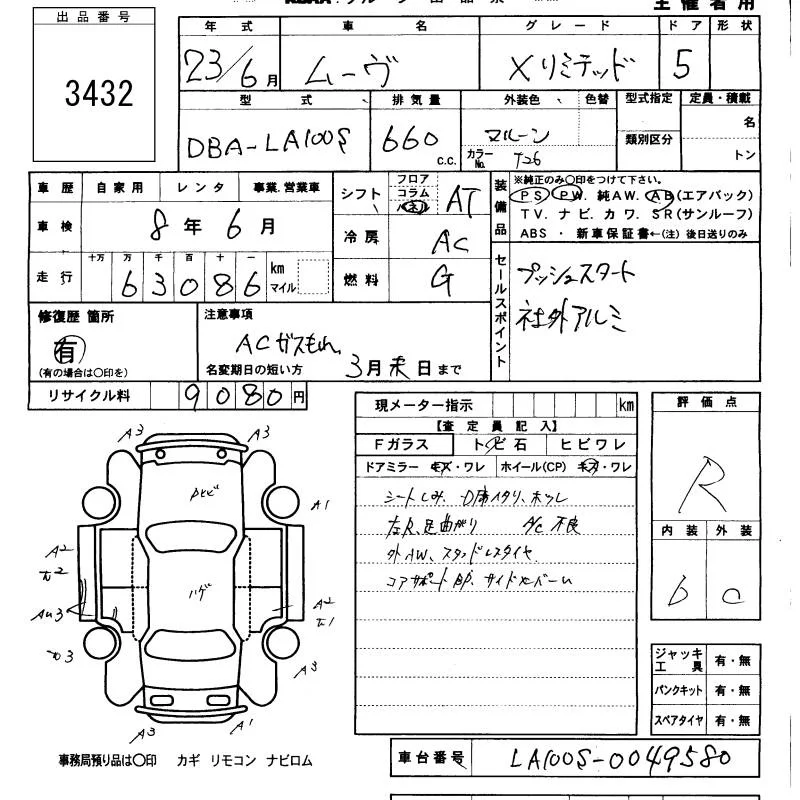 出品番号
3432
主催者用
年式 車名 グレード ドア 形状
23/6月 ムーヴ Xリミテッド 5
型式 排気量 外装色 色替 型式指定 定員・積載
DBA-LA100S 660 c.c. マルーン 類別区分 名
カラーNo. T26 トン
車歴 自家用 レンタ 事業.営業車
車検 8年6月
走行 十万 万 千 百 十 一
63086 km マイル
シフト フロア コラム パネル AT
冷房 AC
燃料 G
装備品
※純正のみ○印をつけて下さい。
PS. PW. 純AW. AB(エアバック)
TV. ナビ. カワ. SR(サンルーフ)
ABS ・ 新車保証書←(注) 後日送りのみ
セールスポイント
プッシュスタート
社外アルミ
修復歴 箇所
有
(有の場合は○印を)
注意事項
ACガスもれ
名変期日の短い方 3月末日まで
リサイクル料 9080円
現メーター指示 km
【査定員記入】
Fガラス トビ石 ヒビワレ
ドアミラー キズ・ワレ ホイール(CP) キズ・ワレ
シートしみ、D席
A/C 不良
外AW、スタッドレスタイヤ
コアサポート
評価点
R
内装 外装
b c
ジャッキ工具 有・無
パンクキット 有・無
スペアタイヤ 有・無
A3 A3
A1
A2
A2
A3
A3 A1
ハゲ
事務局預り品は○印 カギ リモコン ナビロム
車台番号 LA100S-0049580